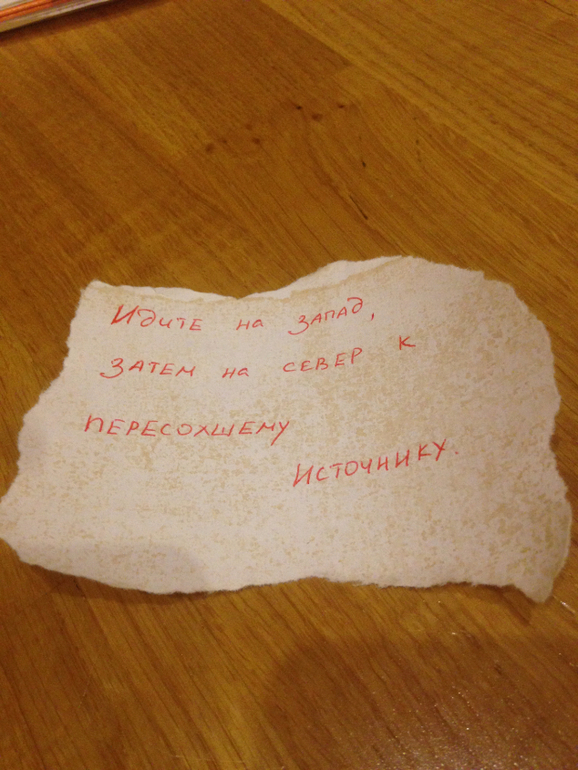 Идите на запад,
затем на север к
пересохшему
источнику.